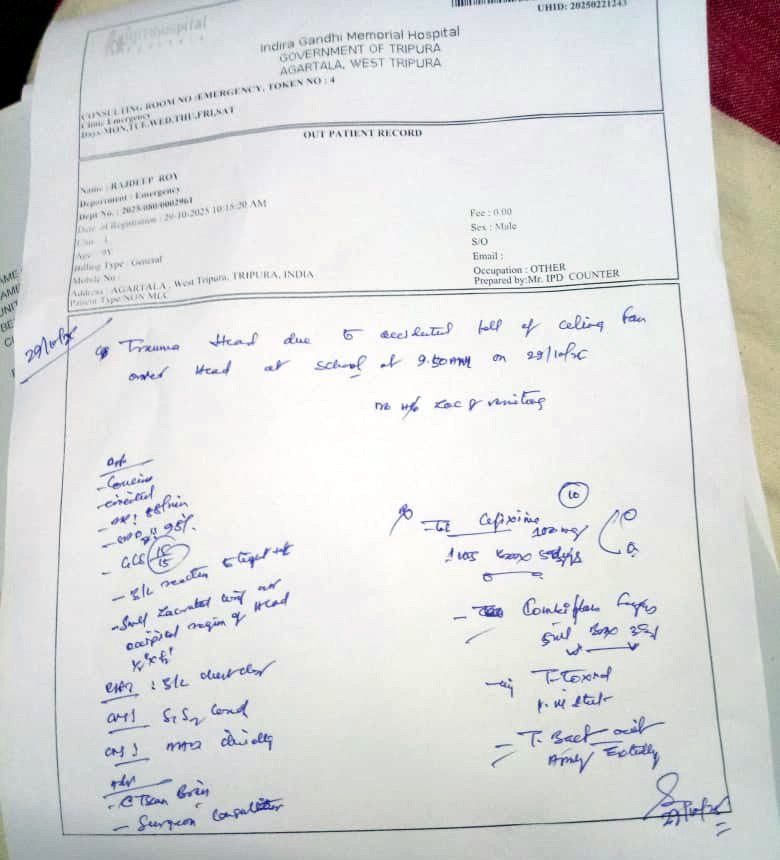 UHID: 20250221243
Indira Gandhi Memorial Hospital
GOVERNMENT OF TRIPURA
AGARTALA, WEST TRIPURA
CONSULTING ROOM NO :EMERGENCY, TOKEN NO : 4
Clinic Emergency
Days MON,TUE,WED,THU,FRI,SAT
OUT PATIENT RECORD
Name : RAJDEEP ROY
Department : Emergency
Dept No. : 2025/080/0002961
Date of Registration : 29-10-2025 10:15:20 AM
Unit : 1
Age : 9Y
Billing Type : General
Mobile No :
Address : AGARTALA , West Tripura, TRIPURA, INDIA
Patient Type:NON MLC
Fee : 0.00
Sex : Male
S/O
Email :
Occupation : OTHER
Prepared by:Mr. IPD COUNTER
29/10/25
Trauma Head due to accidental fall of celing fan
over Head at school at 9.50AM on 29/10/25
no H/o LOC & vomiting
O/E
- Concious
- oriented
- 98%
- GCS 15/15
- B/L reaction to light
- Small Lacerated over
occipital region of Head
: B/L chest clear
S1 S2
CNS
Adv
- CT Scan Brain
- Surgeon
10
- Cefixime 100mg
5 days
- Combiflam
- T-Toxoid
- T. Bact oint
Apply Externally
29/10/25